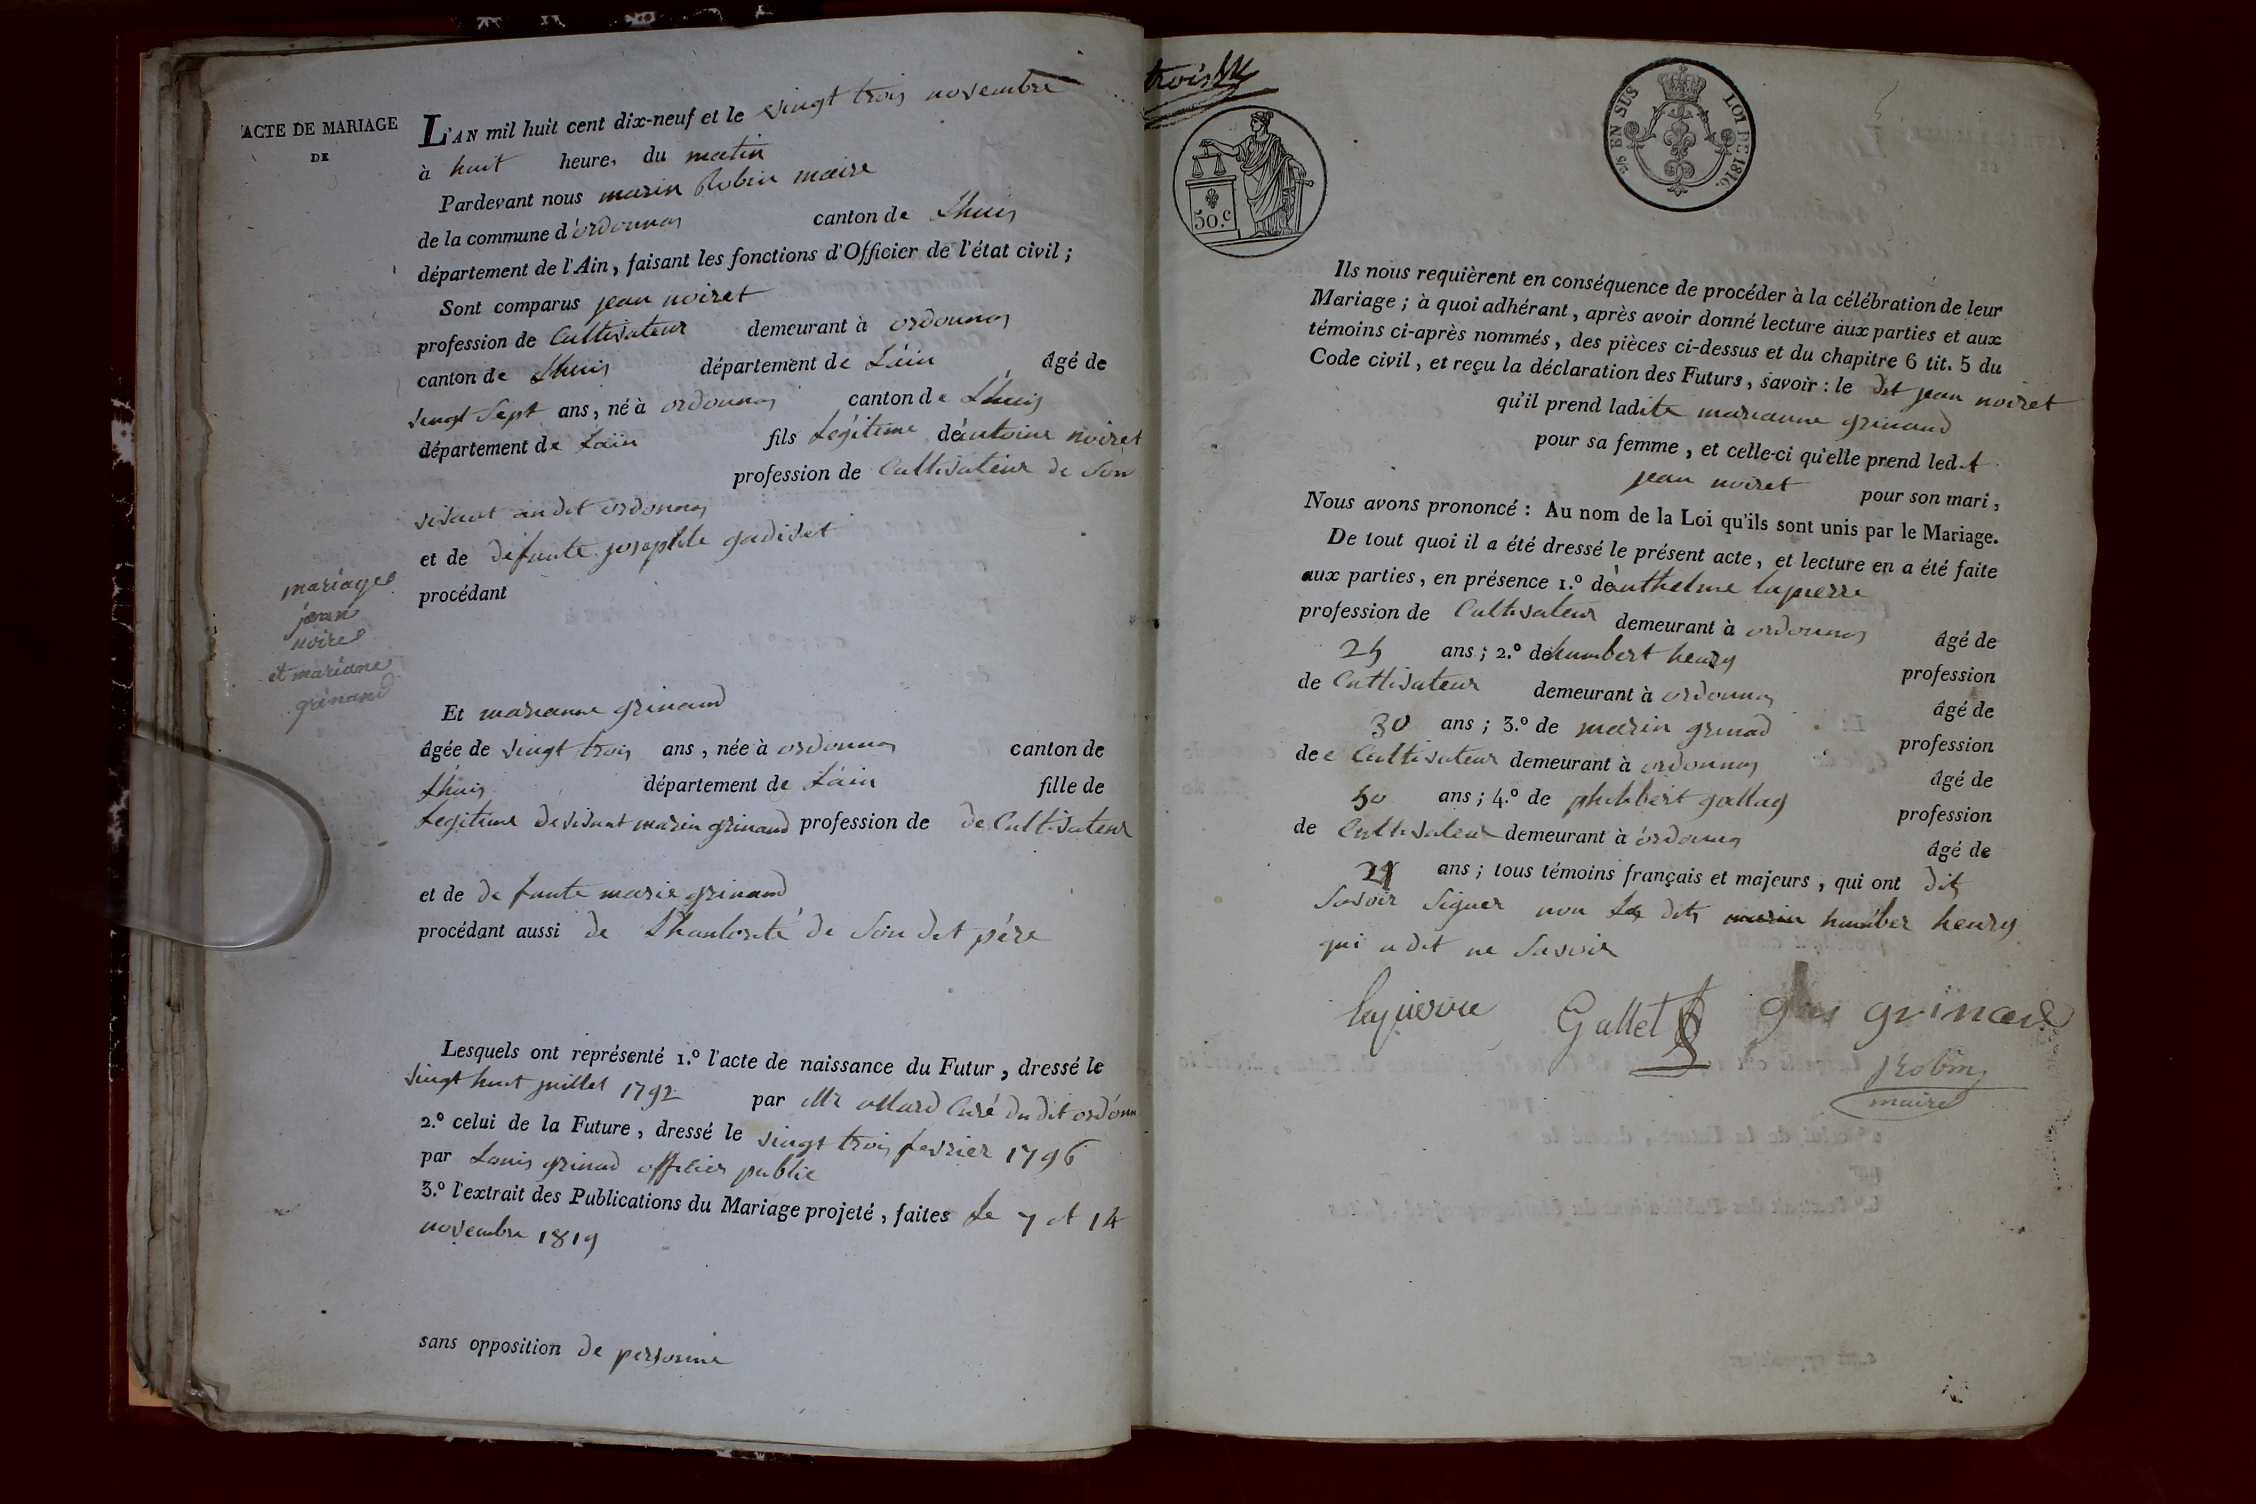 ACTE DE MARIAGE
DE
mariage
jean
noiret
et mariane
grinand
L'AN mil huit cent dix-neuf et le vingt trois novembre
à huit heure, du matin
Pardevant nous marin Robin maire
de la commune d'ordonnas canton de Lhuis
département de l'Ain, faisant les fonctions d'Officier de l'état civil;
Sont comparus jean noiret
profession de Cultivateur demeurant à ordonnas
canton de Lhuis département de L'ain âgé de
vingt Sept ans, né à ordonnas canton de Lhuis
département de Lain fils Légitime de antoine noiret
profession de Cultivateur de Son
vivant au dit ordonnas
et de défunte josephte gadivet
procédant
Et marianne grinand
âgée de vingt trois ans, née à ordonnas canton de
Lhuis département de Lain fille de
Legitime de vivant marin grinand profession de de Cultivateur
et de de funte marie grinand
procédant aussi de Lhautorité de Son dit père
Lesquels ont représenté 1.º l'acte de naissance du Futur, dressé le
vingt huit juillet 1792 par Mr allard Curé du dit ordonn
2.º celui de la Future, dressé le vingt trois fevrier 1796
par Louis grinad officier public
3.º l'extrait des Publications du Mariage projeté, faites Le 7 et 14
novembre 1819
sans opposition de personne
trois
50.c
EN SUS LOI DE 1816.
Ils nous requièrent en conséquence de procéder à la célébration de leur
Mariage; à quoi adhérant, après avoir donné lecture aux parties et aux
témoins ci-après nommés, des pièces ci-dessus et du chapitre 6 tit. 5 du
Code civil, et reçu la déclaration des Futurs, savoir: le dit jean noiret
qu'il prend ladite marianne grinand
pour sa femme, et celle-ci qu'elle prend ledit
jean noiret pour son mari,
Nous avons prononcé: Au nom de la Loi qu'ils sont unis par le Mariage.
De tout quoi il a été dressé le présent acte, et lecture en a été faite
aux parties, en présence 1.º de anthelme laguerre
profession de Cultivateur demeurant à ordonnas âgé de
ans; 2.º de humbert henry profession
de Cultivateur demeurant à ordonnas âgé de
30 ans; 3.º de marin grinad profession
de Cultivateur demeurant à ordonnas âgé de
50 ans; 4.º de philibert gallay profession
de Cultivateur demeurant à ordonnas âgé de
ans; tous témoins français et majeurs, qui ont dit
Savoir Signer non Le dit marin humber henry
qui a dit ne Savoir
laguerre Gallet grinard
Robin
maire